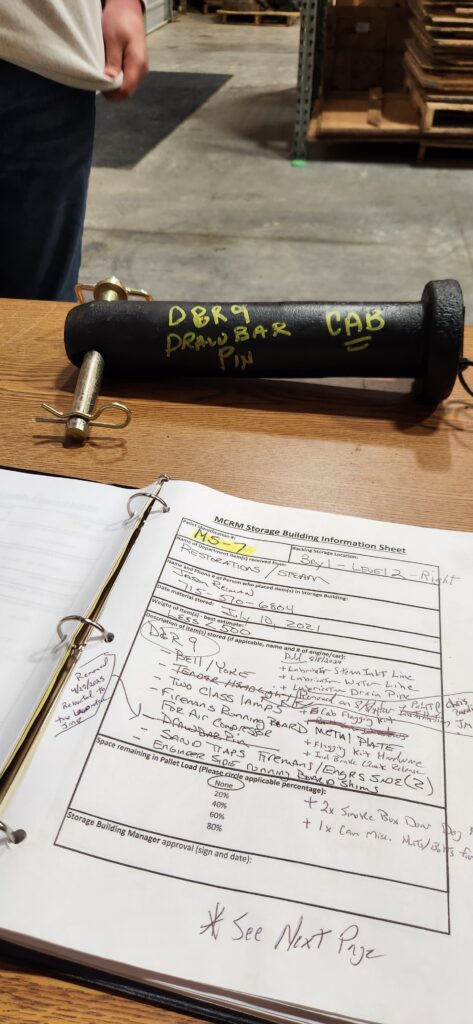 D&R 9
DRAWBAR
PIN
CAB
MCRM Storage Building Information Sheet
Pallet Identification #:
MS-7
Racking Storage Location:
BAY 1 - LEVEL 2 - Right
Name of Department item(s) received from:
RESTORATIONS / STEAM
Name and Phone # of Person who placed item(s) in Storage Building:
Jason Reiman
715-570-6804
Date material stored: July 10, 2021
Weight of item(s) - best estimate:
LESS 2500
Description of item(s) stored (if applicable, name and # of engine/car):
D&R 9
- BELL/YOKE
- TENDER
- TWO CLASS LAMPS
- FIREMANS RUNNING BOARD
FOR AIR COMPRESSOR
- DRAWBAR PIN
- SAND TRAPS FIREMANS/ENGRS SIDE (2)
- ENGINEER SIDE RUNNING BOARD SHIMS
+ Lubricator Steam Inlet Line
+ Lubricator Water Line
+ Lubricator Drain Pipe
METAL PLATE
+ Flagging Kit Hardware
+ Ind Brake Quick Release
+ 2x Smoke Box Door Dog
+ 1x Can Misc. Nuts/Bolts
Removed
Returned to
the
Space remaining in Pallet Load (Please circle applicable percentage):
None
20%
40%
60%
80%
Storage Building Manager approval (sign and date):
* See Next Page